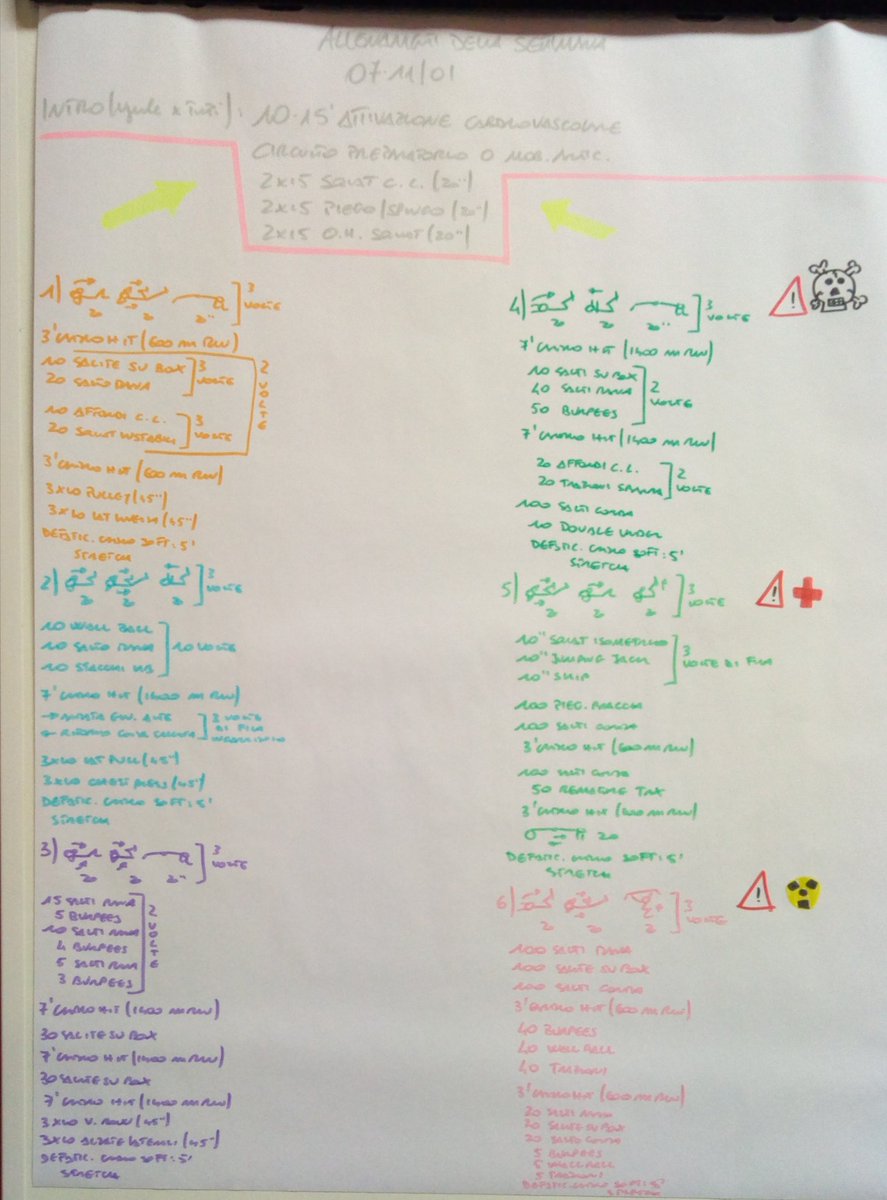 ALLENAMENTI DELLA SETTIMANA
07-11/01
INTRO (uguale x tutti): 10-15' ATTIVAZIONE CARDIOVASCOLARE
CIRCUITO PREPARATORIO O MOB. ARTIC.
2x15 SQUAT C.L. (20")
2x15 PIEGO/SPINGO (20")
2x15 O.H. SQUAT (20")
1) 3 VOLTE
20 20 20"
3' CARDIO HIT (600 m RUN)
10 SALITE SU BOX
20 SALTO RANA
3 VOLTE
10 AFFONDI C.L.
20 SQUAT INSTABILI
3 VOLTE
2 VOLTE
3' CARDIO HIT (600 m RUN)
3x10 PULLEY (45")
3x10 LAT (45")
DEFATIC. CARDIO SOFT: 5'
STRETCH
2) 3 VOLTE
20 20 20
10 WALL BALL
10 SALTO RANA
10 STACCHI KB
10 VOLTE
7' CARDIO HIT (1400 m RUN)
→ ANDATA GIN. ALTE
← RITORNO CORSA CALCIATA
3 VOLTE DI FILA
3x10 LAT PULL (45")
3x10 CHEST PRESS (45")
DEFATIC. CARDIO SOFT: 5'
STRETCH
3) 3 VOLTE
20 20 20"
15 SALTI RANA
5 BURPEES
10 SALTI RANA
4 BURPEES
5 SALTI RANA
3 BURPEES
2 VOLTE
7' CARDIO HIT (1400 m RUN)
30 SALITE SU BOX
7' CARDIO HIT (1400 m RUN)
30 SALITE SU BOX
7' CARDIO HIT (1400 m RUN)
3x10 V. ROW (45")
3x10 ALZATE LATERALI (45")
DEFATIC. CARDIO SOFT: 5'
STRETCH
4) 3 VOLTE
20 20 20"
!
7' CARDIO HIT (1400 m RUN)
10 SALTI SU BOX
40 SALTI RANA
50 BURPEES
2 VOLTE
7' CARDIO HIT (1400 m RUN)
20 AFFONDI C.L.
20 TRAZIONI SBARRA
2 VOLTE
100 SALTI CORDA
10 DOUBLE UNDER
DEFATIC. CARDIO SOFT: 5'
STRETCH
5) 3 VOLTE
20 20 20
!
10" SQUAT ISOMETRICO
10" JUMPING JACK
10" SKIP
3 VOLTE DI FILA
100 PIEG. BRACCIA
100 SALTI CORDA
3' CARDIO HIT (600 m RUN)
100 SALTI CORDA
50 REMATORE TRX
3' CARDIO HIT (600 m RUN)
20
DEFATIC. CARDIO SOFT: 5'
STRETCH
6) 3 VOLTE
20 20 20
!
100 SALTI RANA
100 SALITE SU BOX
100 SALTI CORDA
3' CARDIO HIT (600 m RUN)
40 BURPEES
40 WALL BALL
40 TRAZIONI
3' CARDIO HIT (600 m RUN)
20 SALTI RANA
20 SALITE SU BOX
20 SALTO CORDA
5 BURPEES
5 WALL BALL
5 TRAZIONI
DEFATIC. CARDIO SOFT: 5'
STRETCH